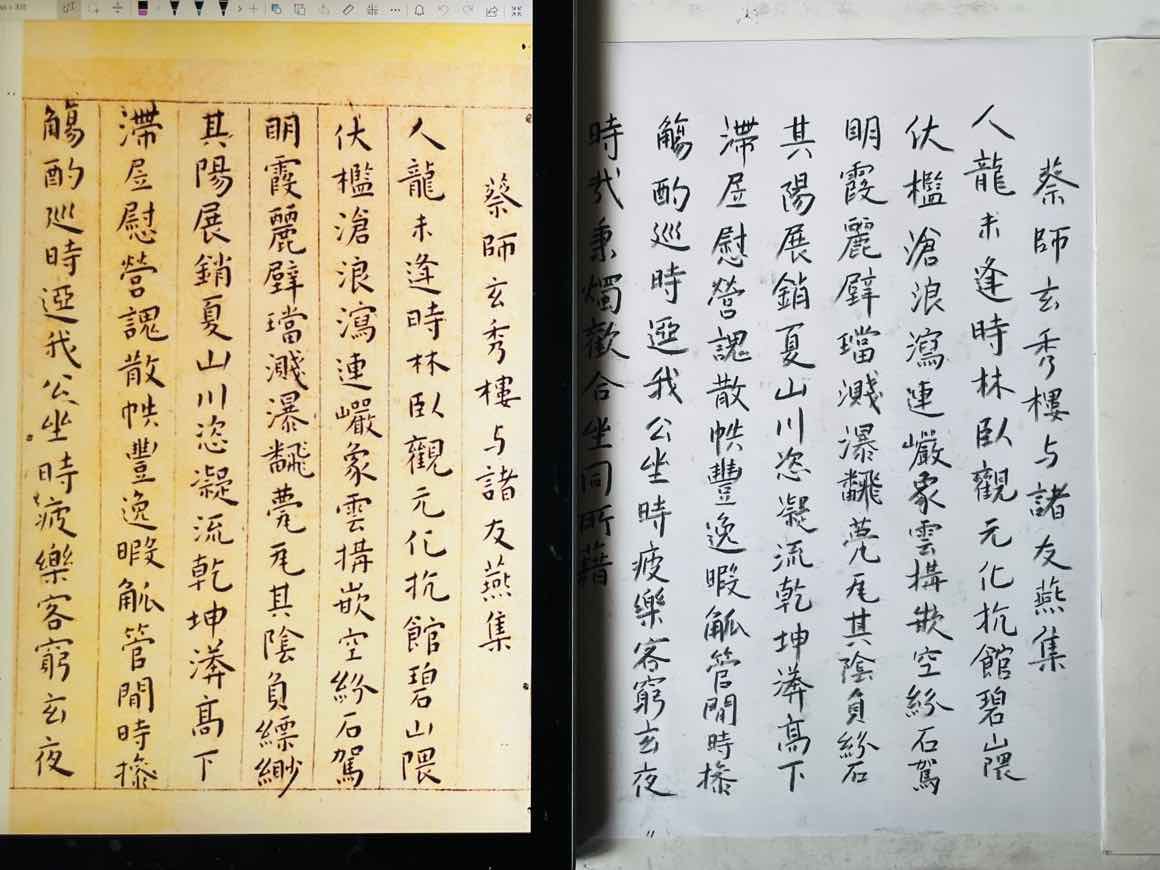 蔡師玄秀樓与諸友燕集
人龍未逢時林臥觀元化抗館碧山隈
伏檻滄浪瀉連巗象雲搆嵌空紛石駕
明霞麗璧璫濺瀑飜甍瓦其陰負縹緲
其陽展銷夏山川恣凝流乾坤漭高下
滯居慰營䰟散帙豐逸暇觚管閒時摻
觴酌巡時迓我公坐時疲樂客窮玄夜
蔡師玄秀樓与諸友燕集
人龍未逢時林臥觀元化抗館碧山隈
伏檻滄浪瀉連巗象雲搆嵌空紛石駕
明霞麗璧璫濺瀑飜甍瓦其陰負紛石
其陽展銷夏山川恣凝流乾坤漭高下
滯居慰營䰟散帙豐逸暇觚管閒時摻
觴酌巡時迓我公坐時疲樂客窮玄夜
時哉秉燭歡合坐同所藉